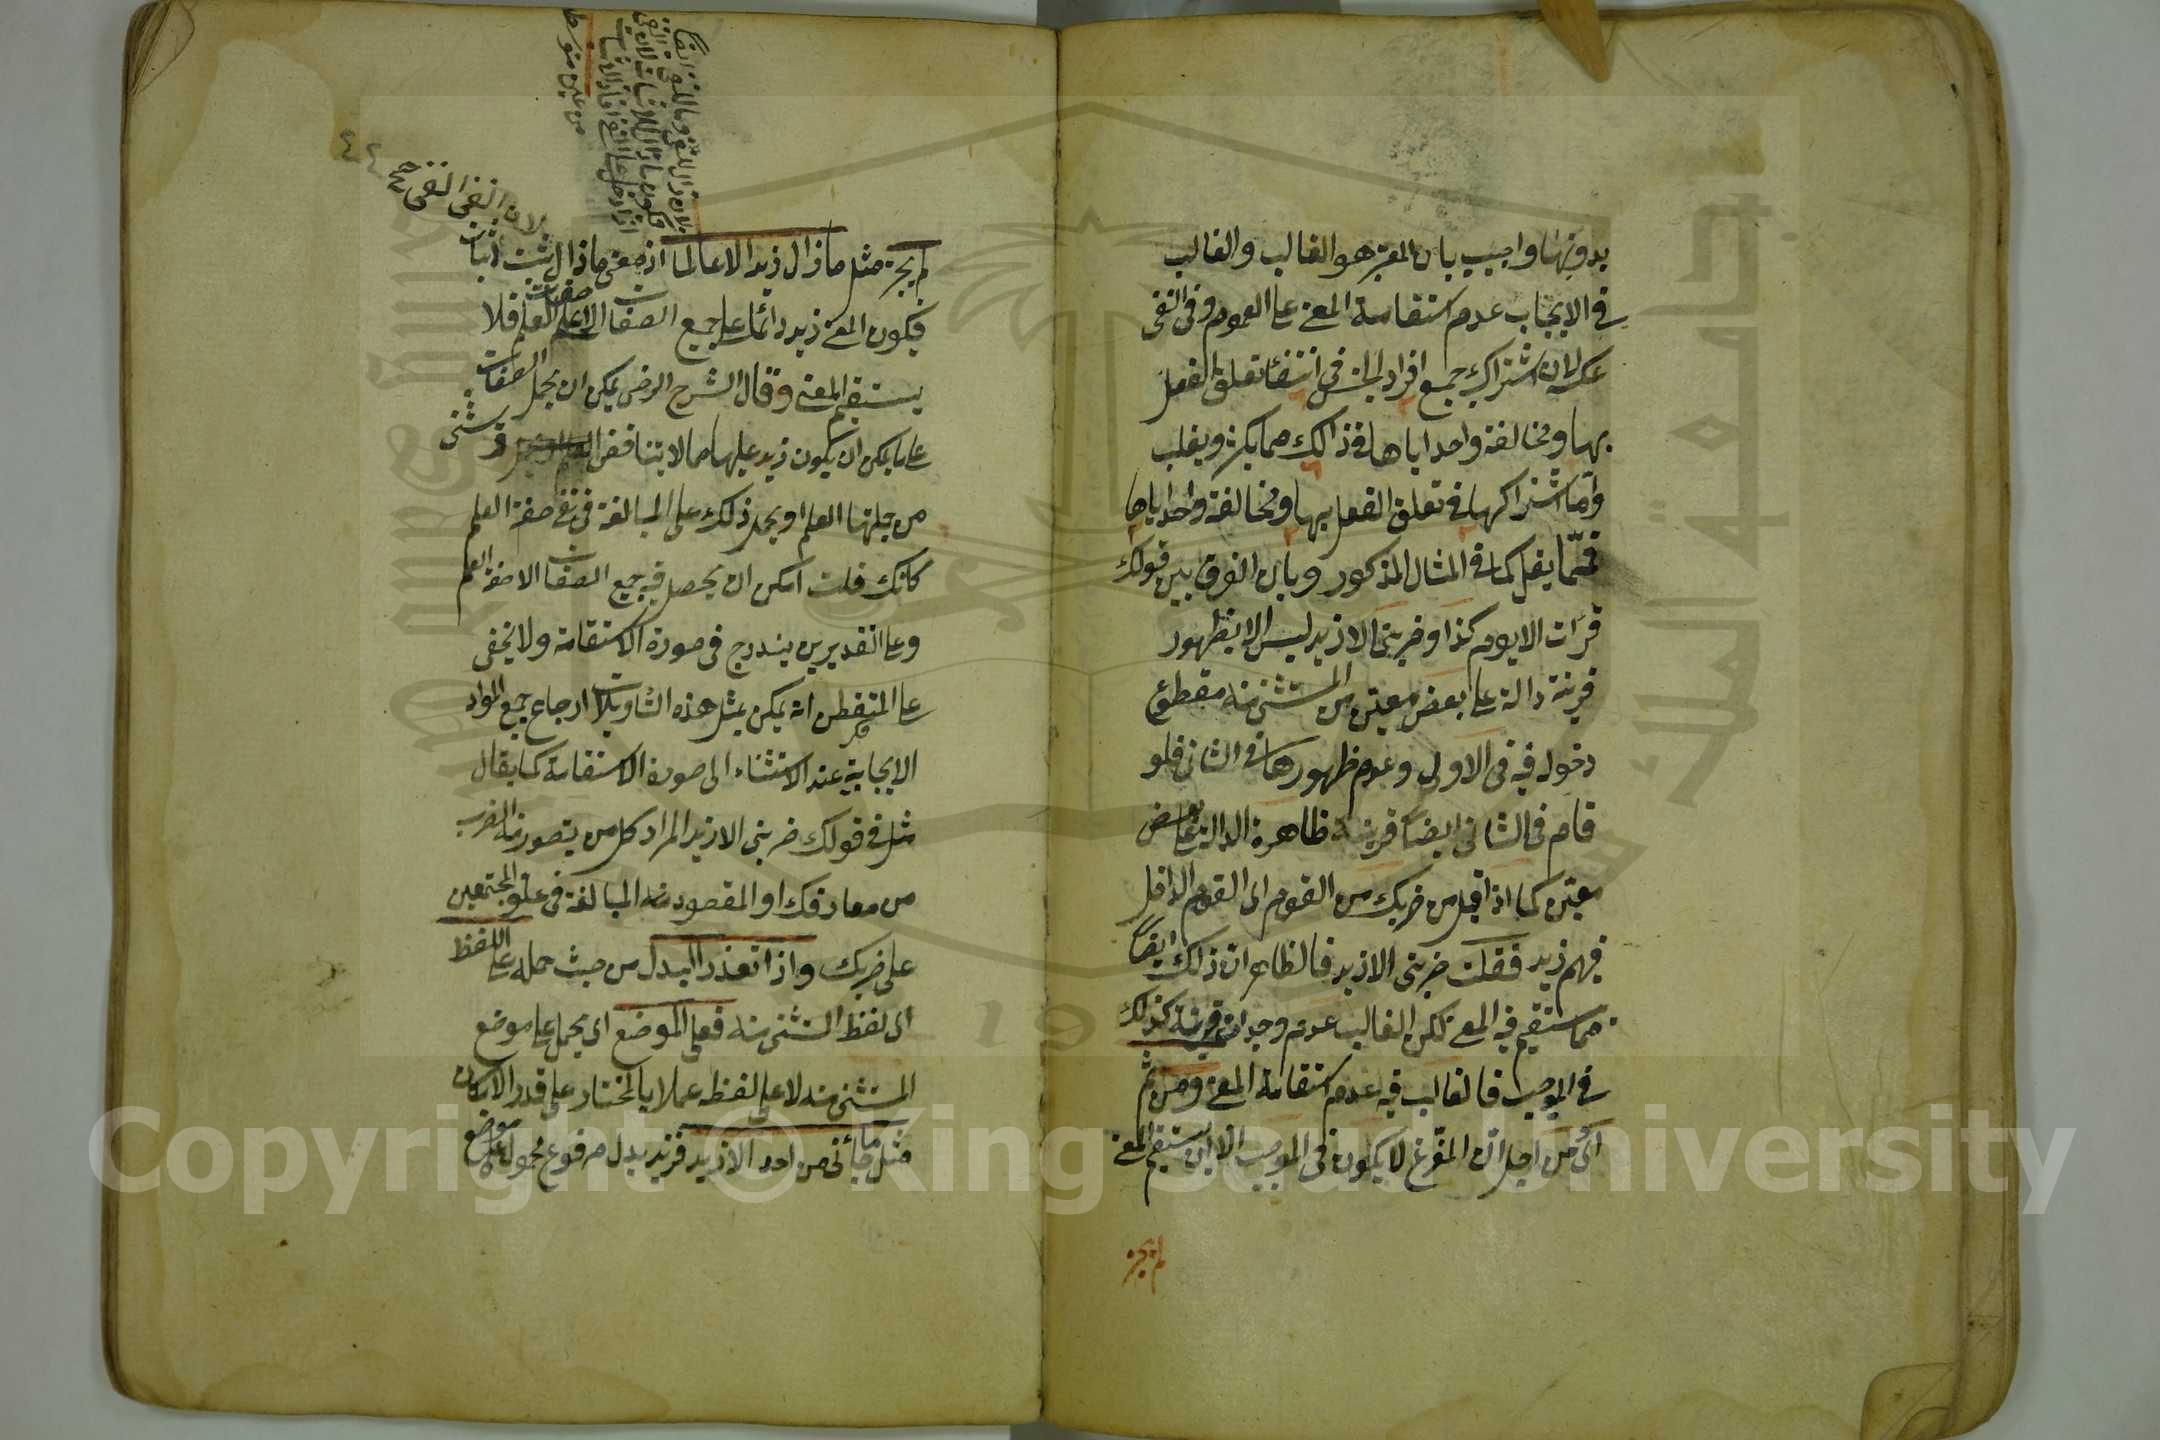 بدونها واجيب بان المعتبر هو الغالب والغالب
في الايجاب عدم استقامة المعنى على العموم وفي النفى
عكسه لان اشتراك جميع افراد الجنس في انتفاء تعلق الفعل
بها ومخالفة واحد اياها في ذالك مما يكثر ويغلب
وامّا اشتراكها في تعلق الفعل بها ومخالفة واحد اياها
فمّما يقل كما في المثال المذكور وبان الفرق بين قولك
قرات الا يوم كذا وضربنى الا زيد ليس الا بظهور
قرينة دالة على بعض معين من المستثنى منه مقطوع
دخوله فيه في الاول وعدم ظهورها في الثانى فلو
قام في الثانى ايضا قرينة ظاهرة الدالة على بعض
معيّن كما اذا قيل من ضربك من القوم اى القوم الداخل
فيهم زيد فقلت ضربنى الا زيد فالظاهر ان ذلك ايضا
مما يستقيم فيه المعنى لكن الغالب عدم وجدان قرينة كذلك
في الموجب فالغالب فيه عدم استقامة المعنى ومن ثم
اى من اجل ان المفرّغ لا يكون في الموجب الا ان يستقيم المعنى
لم يجز
لم يجز مثل ما زال زيد الا عالما اذ معنى ما زال ثبت
لان نفى النفى اثبات
فيكون المعنى زيد دائما على جميع الصفات الا صفة العلم فلا
يستقيم المعنى وقال الشرح الرضى يمكن ان يحمل الصفات
على ما يمكن ان يكون زيد عليها مما لا يتناقض
من جملتها العلم او يحمل ذلك على المبالغة في نفى صفة العلم
كانك قلت امكن ان يحصل فيه جميع الصفات الا صفة العلم
وعلى التقديرين يندرج في صورة الاستقامة ولا يخفى
على المتفطن انه يمكن بمثل هذه التاويلات ارجاع جميع المواد
الايجابية عند الاستثناء الى صورة الاستقامة كما يقال
مثلا في قولك ضربنى الا زيد المراد كل من يتصور منه الضرب
من معارفك او المقصود منه المبالغة في غلو المجتمعين
على ضربك واذا تعذر البدل من حيث حمله على اللفظ
اى لفظ المستثنى منه فعلى الموضع اى يحمل على موضع
المستثنى منه لا على لفظه عملا بالمختار على قدر الامكان
مثل ما جائنى من احد الا زيد فزيد بدل مرفوع محمول على موضع
Copyright © King Saud University